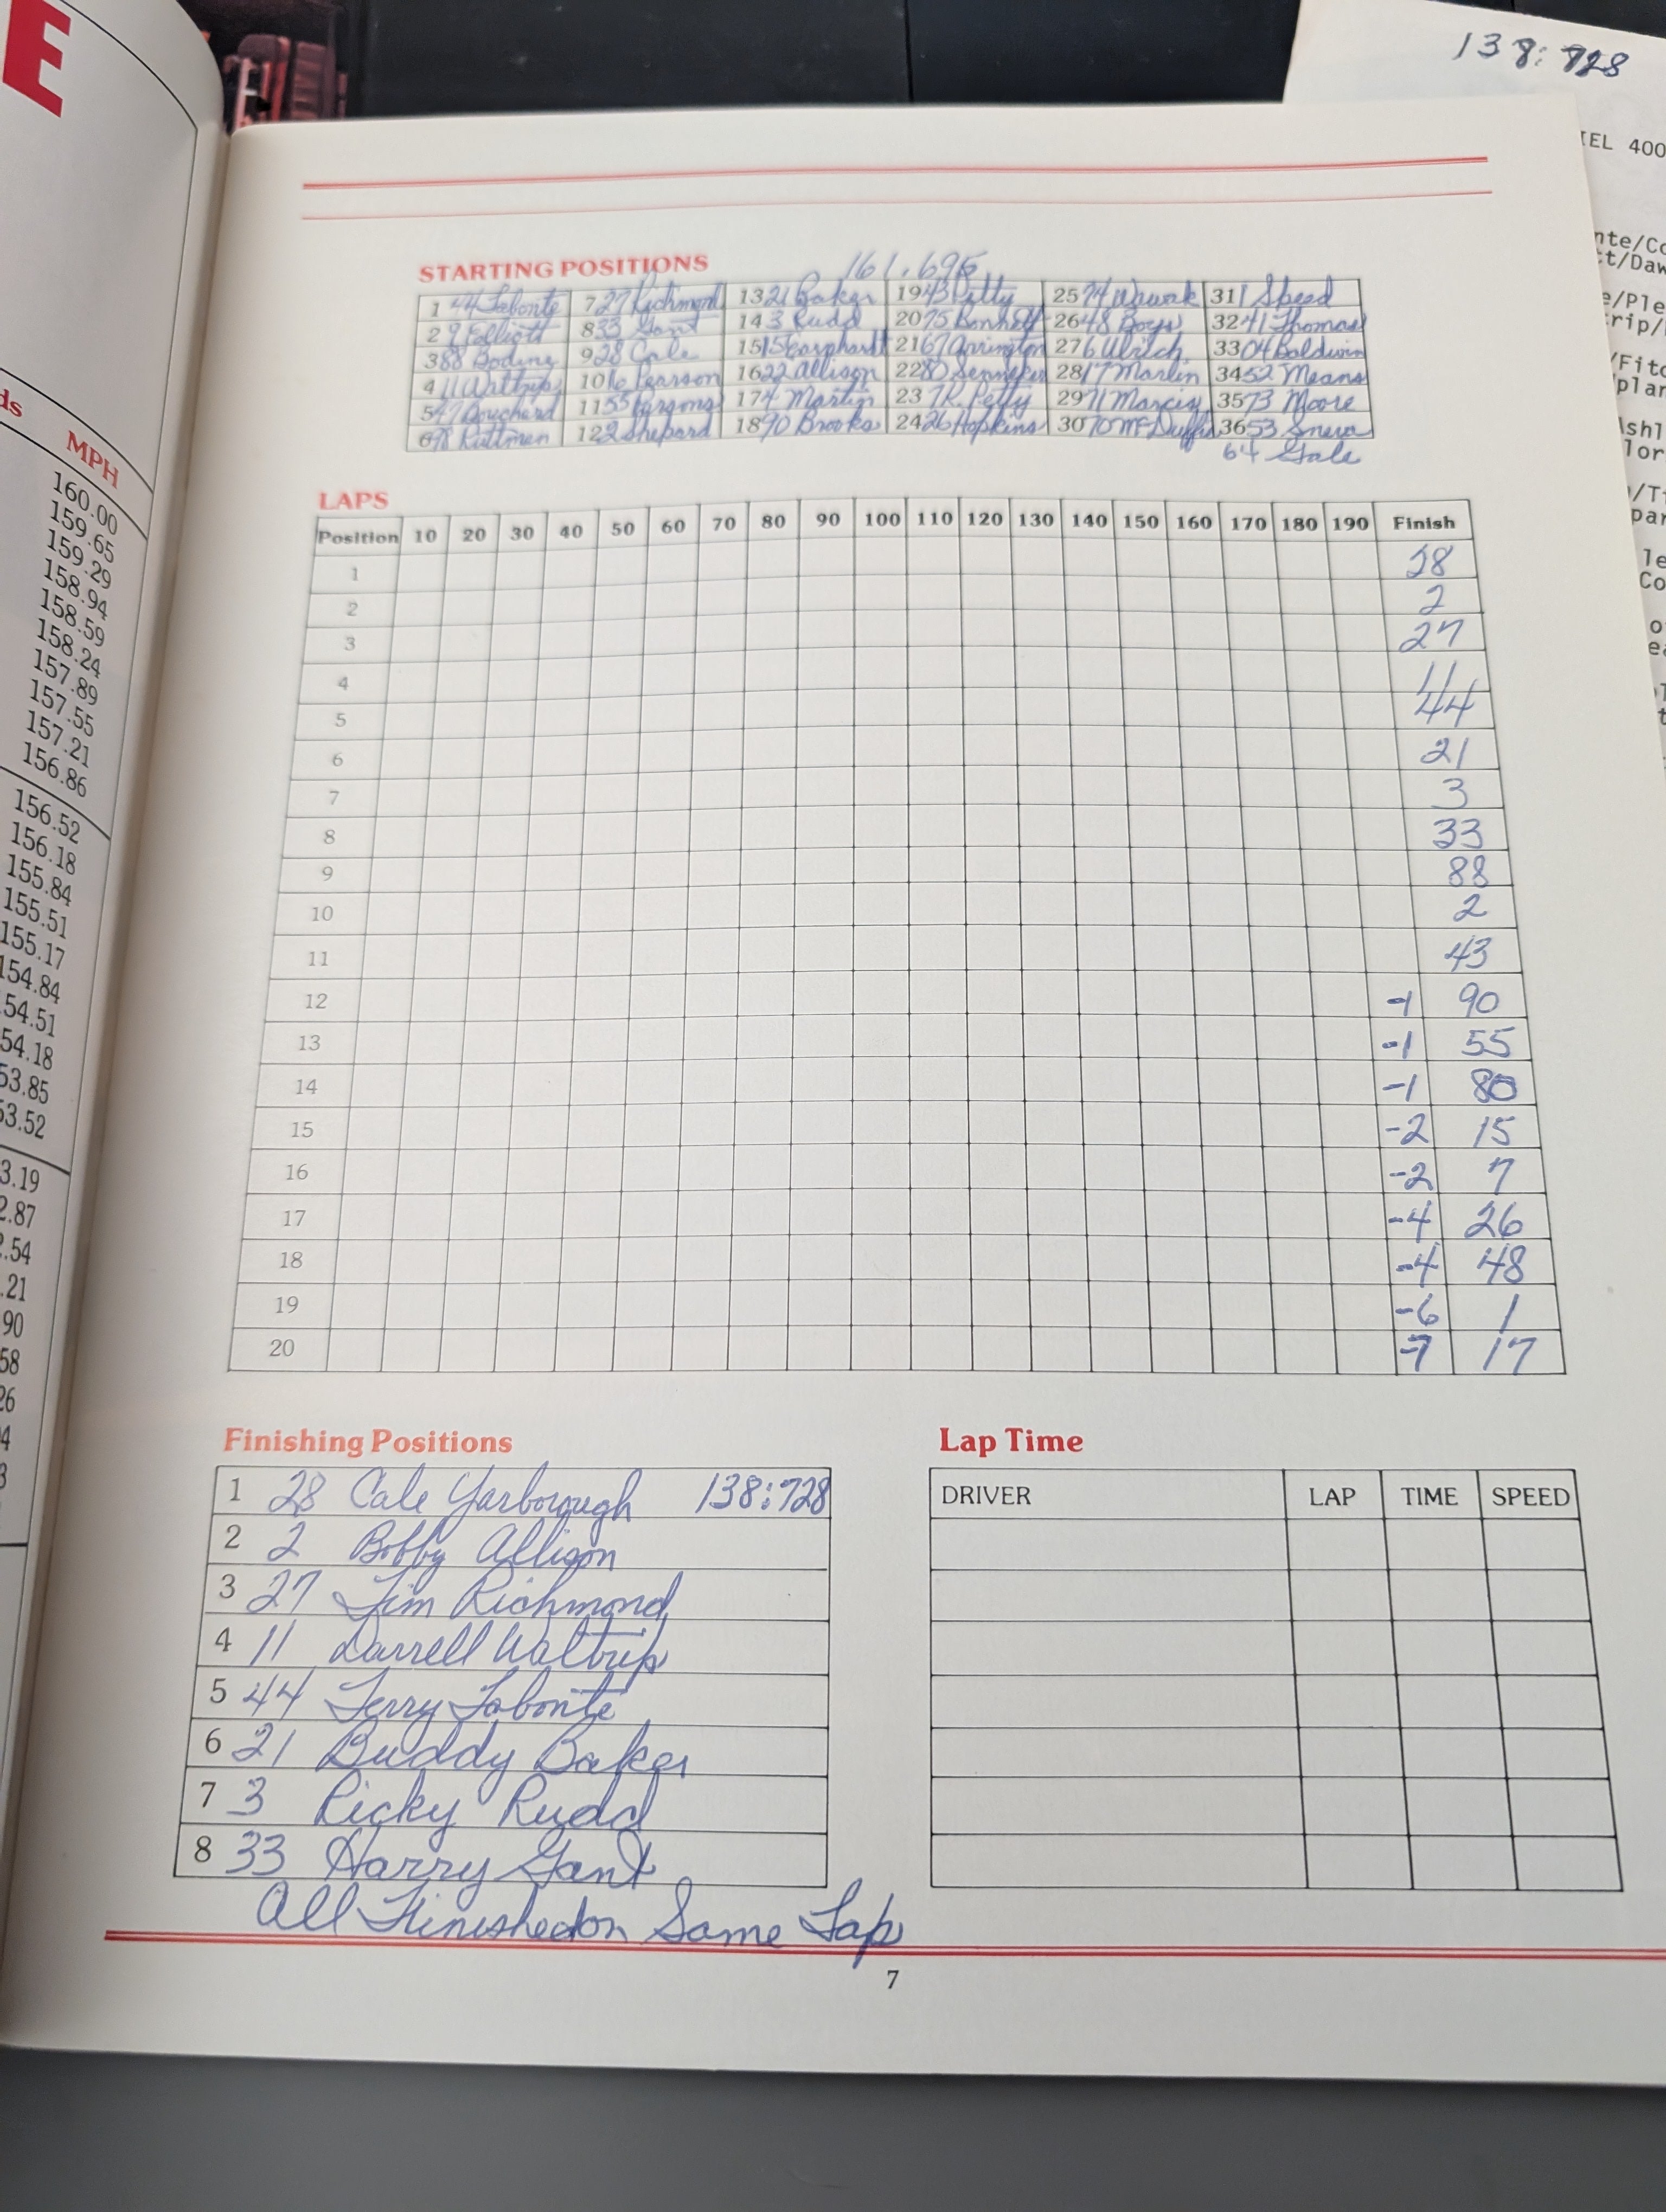 E
138:728
IEL 400
STARTING POSITIONS 161.695
1 44 Labonte 7 27 Richmond 13 21 Baker 19 43 Petty 25 74 Wawak 31 1 Speed
2 9 Elliott 8 33 Gant 14 3 Rudd 20 75 Bonnett 26 48 Boys 32 41 Thomas
3 88 Bodine 9 28 Cale 15 15 Earnhardt 21 67 Arrington 27 6 Ulrich 33 04 Baldwin
4 11 Waltrip 10 16 Pearson 16 22 Allison 22 80 Senneker 28 17 Marlin 34 52 Means
5 47 Bouchard 11 55 Parsons 17 4 Martin 23 7 K. Petty 29 71 Marcis 35 73 Moore
6 98 Ruttman 12 2 Shepard 18 90 Brooks 24 26 Hopkins 30 70 McDuffie 36 53 Sneva
64 Gale
LAPS
Position 10 20 30 40 50 60 70 80 90 100 110 120 130 140 150 160 170 180 190 Finish
1 28
2 2
3 27
4 11
5 44
6 21
7 3
8 33
9 88
10 2
11 43
12 -1 90
13 -1 55
14 -1 80
15 -2 15
16 -2 7
17 -4 26
18 -4 48
19 -6 1
20 -7 17
Finishing Positions
1 28 Cale Yarborough 138:728
2 2 Bobby Allison
3 27 Tim Richmond
4 11 Darrell Waltrip
5 44 Terry Labonte
6 21 Buddy Baker
7 3 Ricky Rudd
8 33 Harry Gant
All Finished on Same Lap
Lap Time
DRIVER LAP TIME SPEED
7
MPH
160.00
159.65
159.29
158.94
158.59
158.24
157.89
157.55
157.21
156.86
156.52
156.18
155.84
155.51
155.17
154.84
54.51
54.18
53.85
53.52
3.19
2.87
2.54
.21
90
58
26